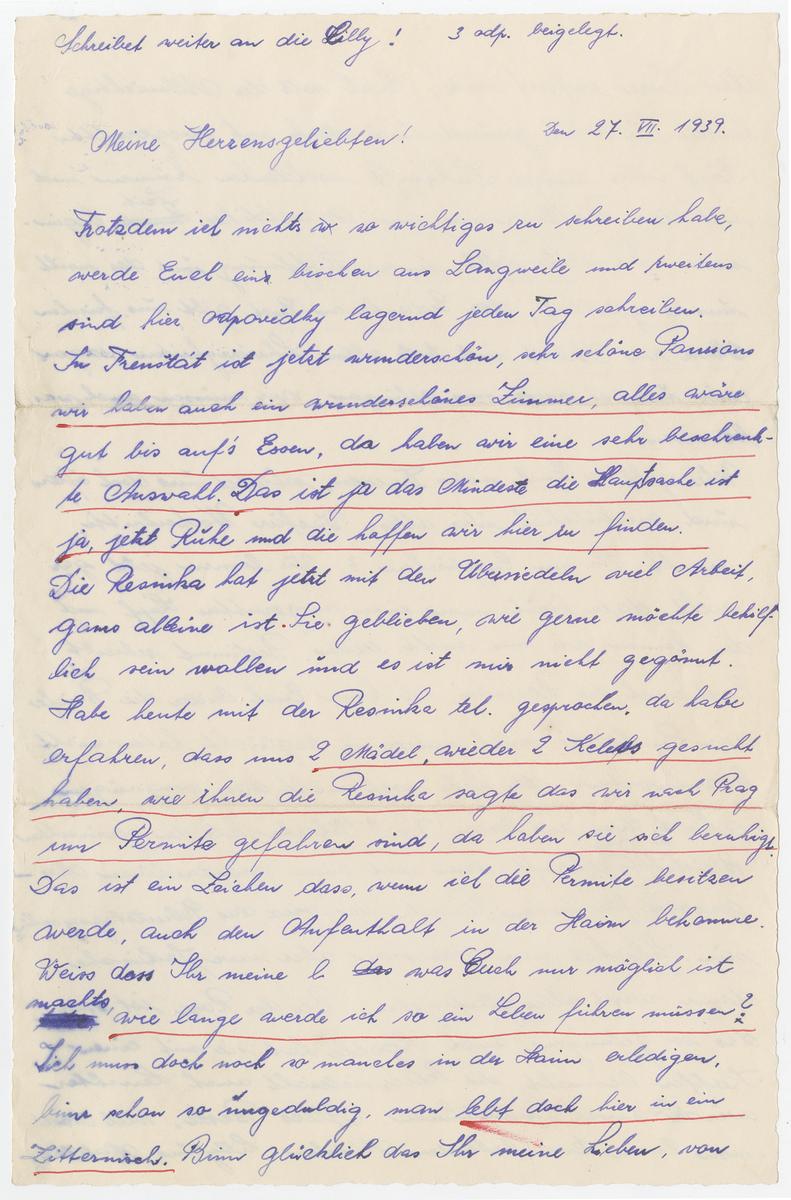 Schreibet weiter an die Lilly! 3 odp. beigelegt.
Den 27. VII. 1939.
Meine Herzensgeliebten!
Trotzdem ich nichts so wichtiges zu schreiben habe,
werde Euch ein bischen aus Langweile und zweitens
sind hier odpovědky lagernd jeden Tag schreiben.
In Frenštát ist jetzt wunderschön, sehr schöne Pansions
wir haben auch ein wunderschönes Zimmer, alles wäre
gut bis auf's Essen, da haben wir eine sehr beschrenk-
te Auswall. Das ist ja das Mindeste die Hauptsache ist
ja, jetzt Ruhe und die hoffen wir hier zu finden.
Die Resinka hat jetzt mit den Übersiedeln viel Arbeit,
gans alleine ist Sie geblieben, wie gerne möchte behilf-
lich sein wollen und es ist mir nicht gegönnt.
Habe heute mit der Resinka tel. gesprochen, da habe
erfahren, dass uns 2 Mädel, wieder 2 gesucht
haben, wie ihnen die Resinka sagte das wir nach Prag
um Permite gefahren sind, da haben sie sich beruhigt.
Das ist ein Zeichen dass, wenn ich die Permite besitzen
werde, auch den Aufenthalt in der Haim bekomme.
Weiss dass Ihr meine l. was Euch nur möglich ist
machts, wie lange werde ich so ein Leben führen müssen?
Ich muss doch noch so manches in der Haim erledigen,
binn schon so ungeduldig, man lebt doch hier in ein
Zitternisch. Binn glücklich das Ihr meine Lieben, von